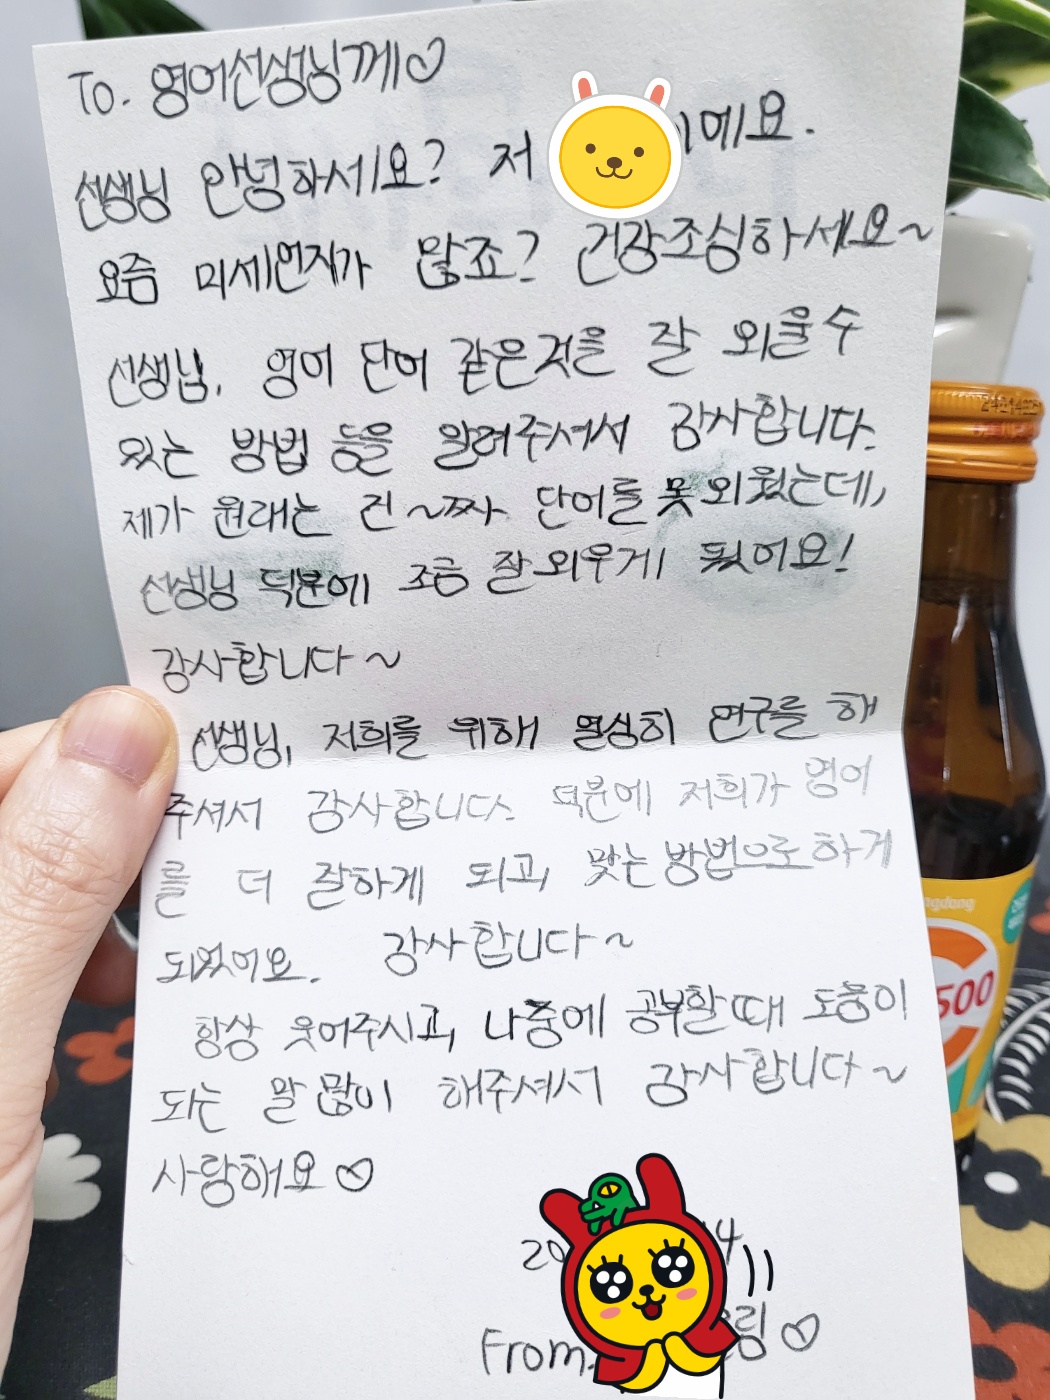 To. 영어선생님께♡
선생님 안녕하세요? 저 이에요.
요즘 미세먼지가 많죠? 건강조심하세요~
선생님, 영어 단어 같은것을 잘 외울수
있는 방법 등을 알려주셔서 감사합니다.
제가 원래는 진~짜 단어를 못외웠는데,
선생님 덕분에 조금 잘외우게 됬어요!
감사합니다~
선생님, 저희를 위해 열심히 연구를 해
주셔서 감사합니다. 덕분에 저희가 영어
를 더 잘하게 되고, 맞는방법으로하게
되었어요. 감사합니다~
항상 웃어주시고, 나중에 공부할때 도움이
되는 말 많이 해주셔서 감사합니다~
사랑해요♡
20 4
From. 림♡
500